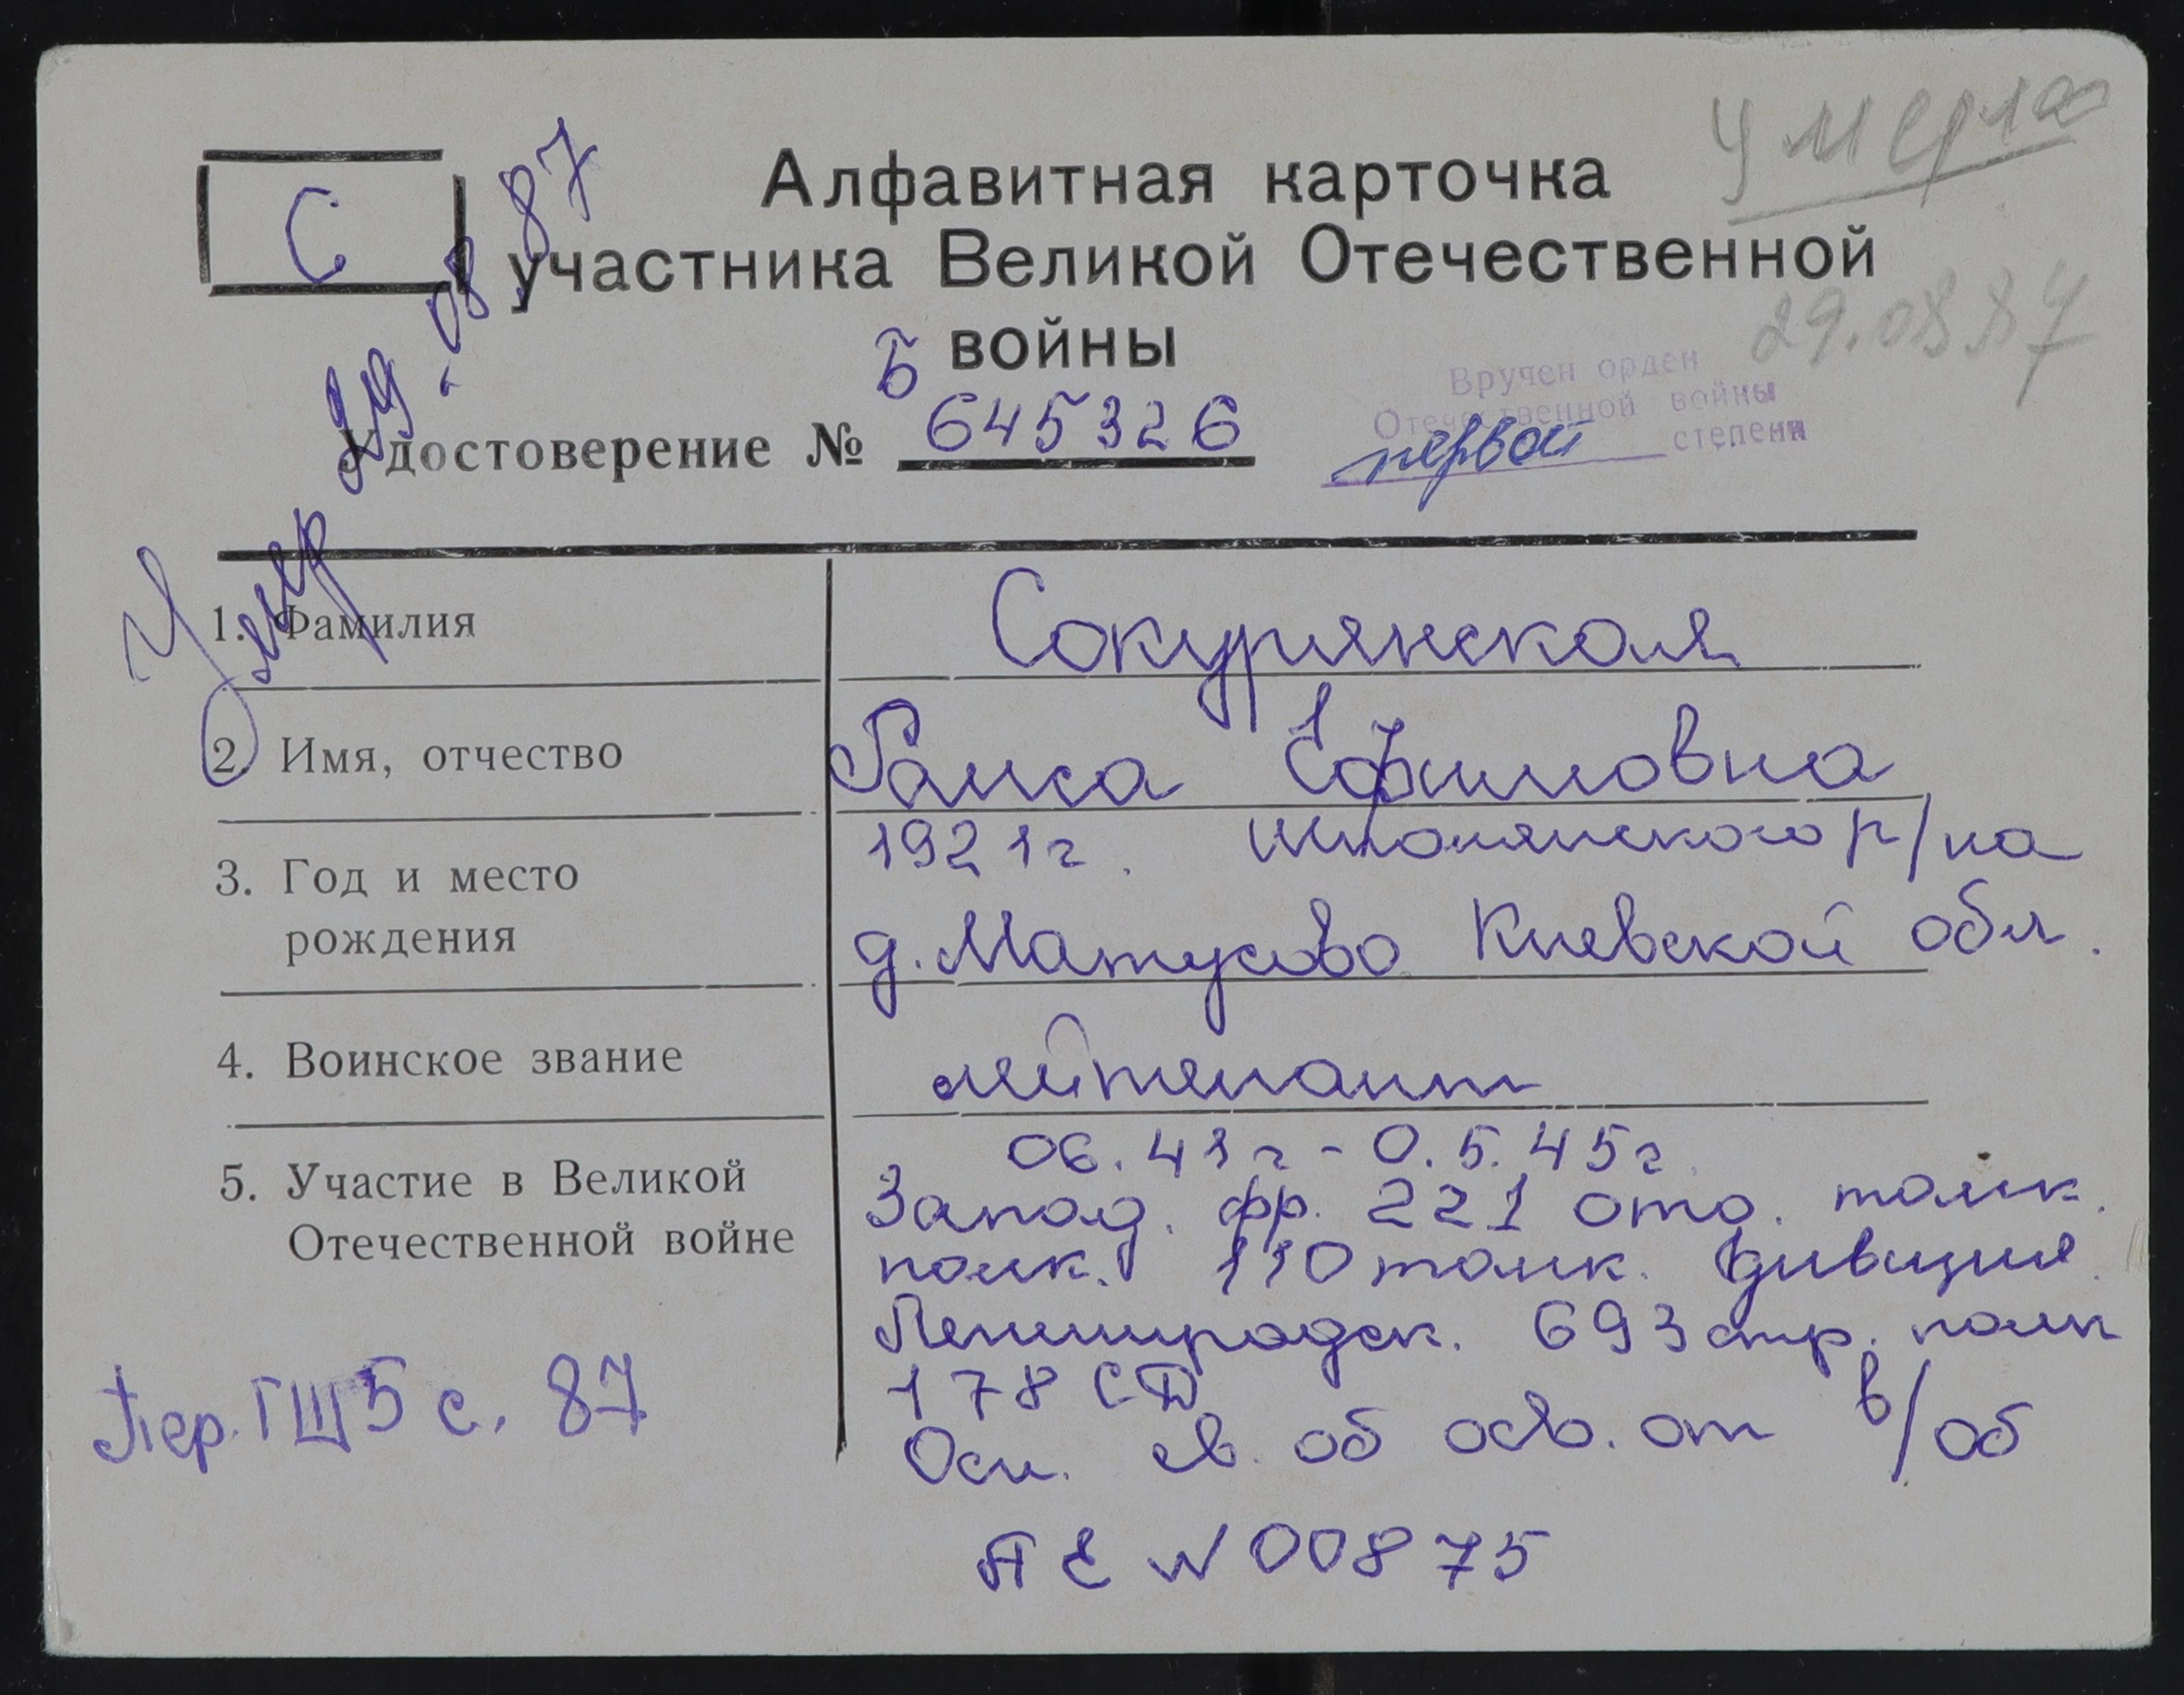 С
Алфавитная карточка
участника Великой Отечественной
войны
умерла
29.08.87
Б
Удостоверение № 645326
Вручен орден
Отечественной войны
первой степени
Умер 29.08.87
1. Фамилия
Сокурянская
2. Имя, отчество
Раиса Ефимовна
3. Год и место
рождения
1921г. Шполянского р/на
д. Матусово Киевской обл.
4. Воинское звание
лейтенант
5. Участие в Великой
Отечественной войне
06.41г - 0.5.45г
Запад. фр. 221 отд. танк.
полк. 110 танк. дивизия
Ленинградск. 693 стр. полк
178 СД
Осн. св. об осв. от в/об
АЕ N 00875
Пер. ГШ 5 с. 87